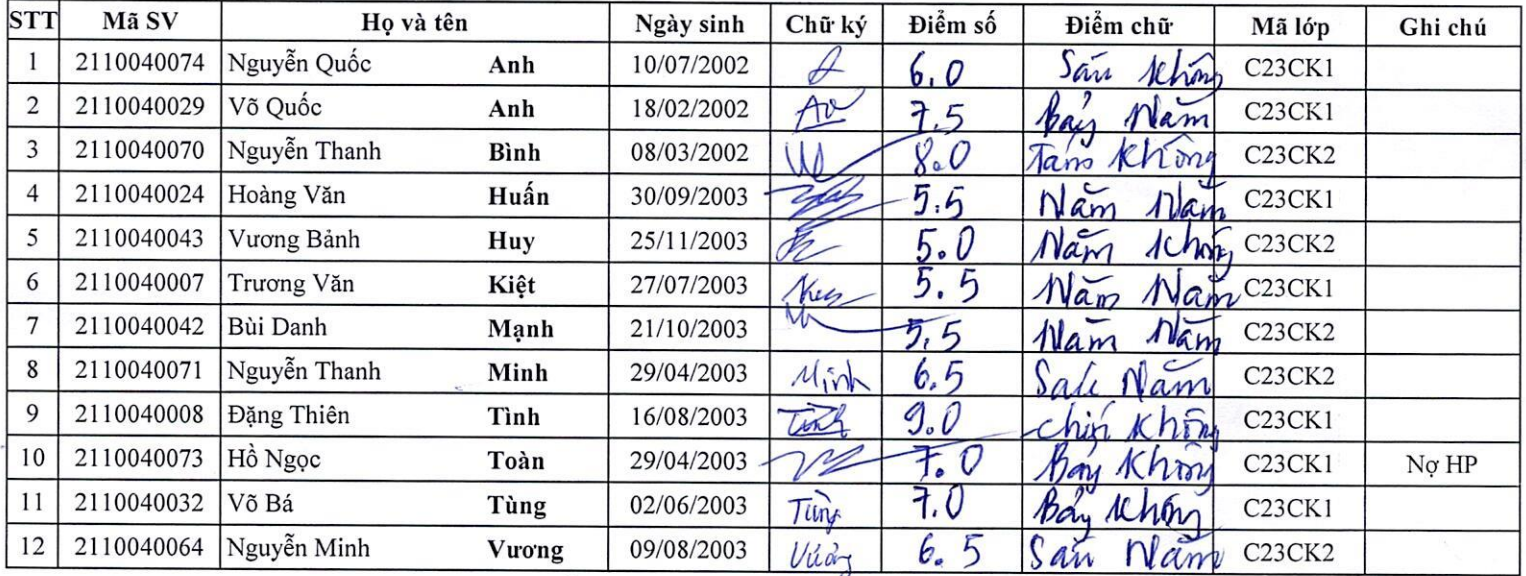 STT Mã SV Họ và tên Ngày sinh Chữ ký Điểm số Điểm chữ Mã lớp Ghi chú
1 2110040074 Nguyễn Quốc Anh 10/07/2002 6.0 Sáu Không C23CK1
2 2110040029 Võ Quốc Anh 18/02/2002 7.5 Bảy Năm C23CK1
3 2110040070 Nguyễn Thanh Bình 08/03/2002 8.0 Tám Không C23CK2
4 2110040024 Hoàng Văn Huấn 30/09/2003 5.5 Năm Năm C23CK1
5 2110040043 Vương Bảnh Huy 25/11/2003 5.0 Năm Không C23CK2
6 2110040007 Trương Văn Kiệt 27/07/2003 5.5 Năm Năm C23CK1
7 2110040042 Bùi Danh Mạnh 21/10/2003 5.5 Năm Năm C23CK2
8 2110040071 Nguyễn Thanh Minh 29/04/2003 Minh 6.5 Sáu Năm C23CK2
9 2110040008 Đặng Thiên Tình 16/08/2003 Tình 9.0 Chín Không C23CK1
10 2110040073 Hồ Ngọc Toàn 29/04/2003 7.0 Bảy Không C23CK1 Nợ HP
11 2110040032 Võ Bá Tùng 02/06/2003 Tùng 7.0 Bảy Không C23CK1
12 2110040064 Nguyễn Minh Vương 09/08/2003 Vương 6.5 Sáu Năm C23CK2